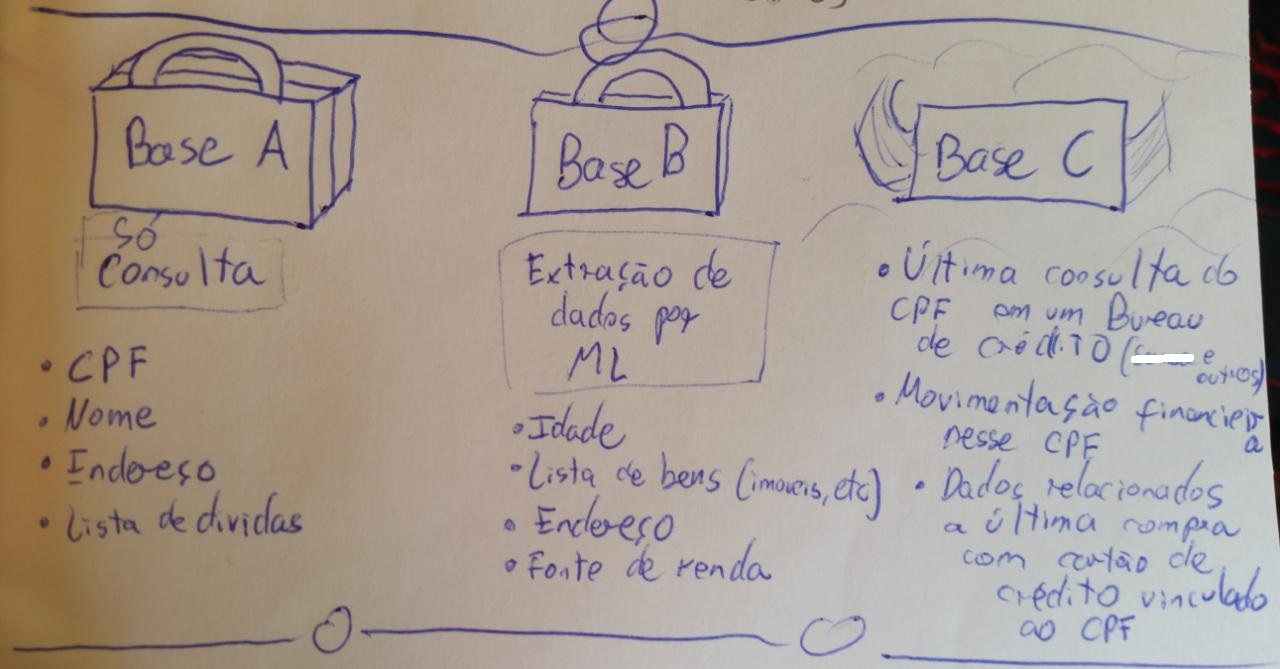 Base A
Só
Consulta
• CPF
• Nome
• Endereço
• Lista de dividas
Base B
Extração de
dados por
ML
• Idade
• Lista de bens (imoveis, etc)
• Endereço
• Fonte de renda
Base C
• Última consulta do
CPF em um Bureau
de crédito ( e
outros)
• Movimentação financeir
a
nesse CPF
• Dados relacionados
a última compra
com cartão de
crédito vinculado
ao CPF